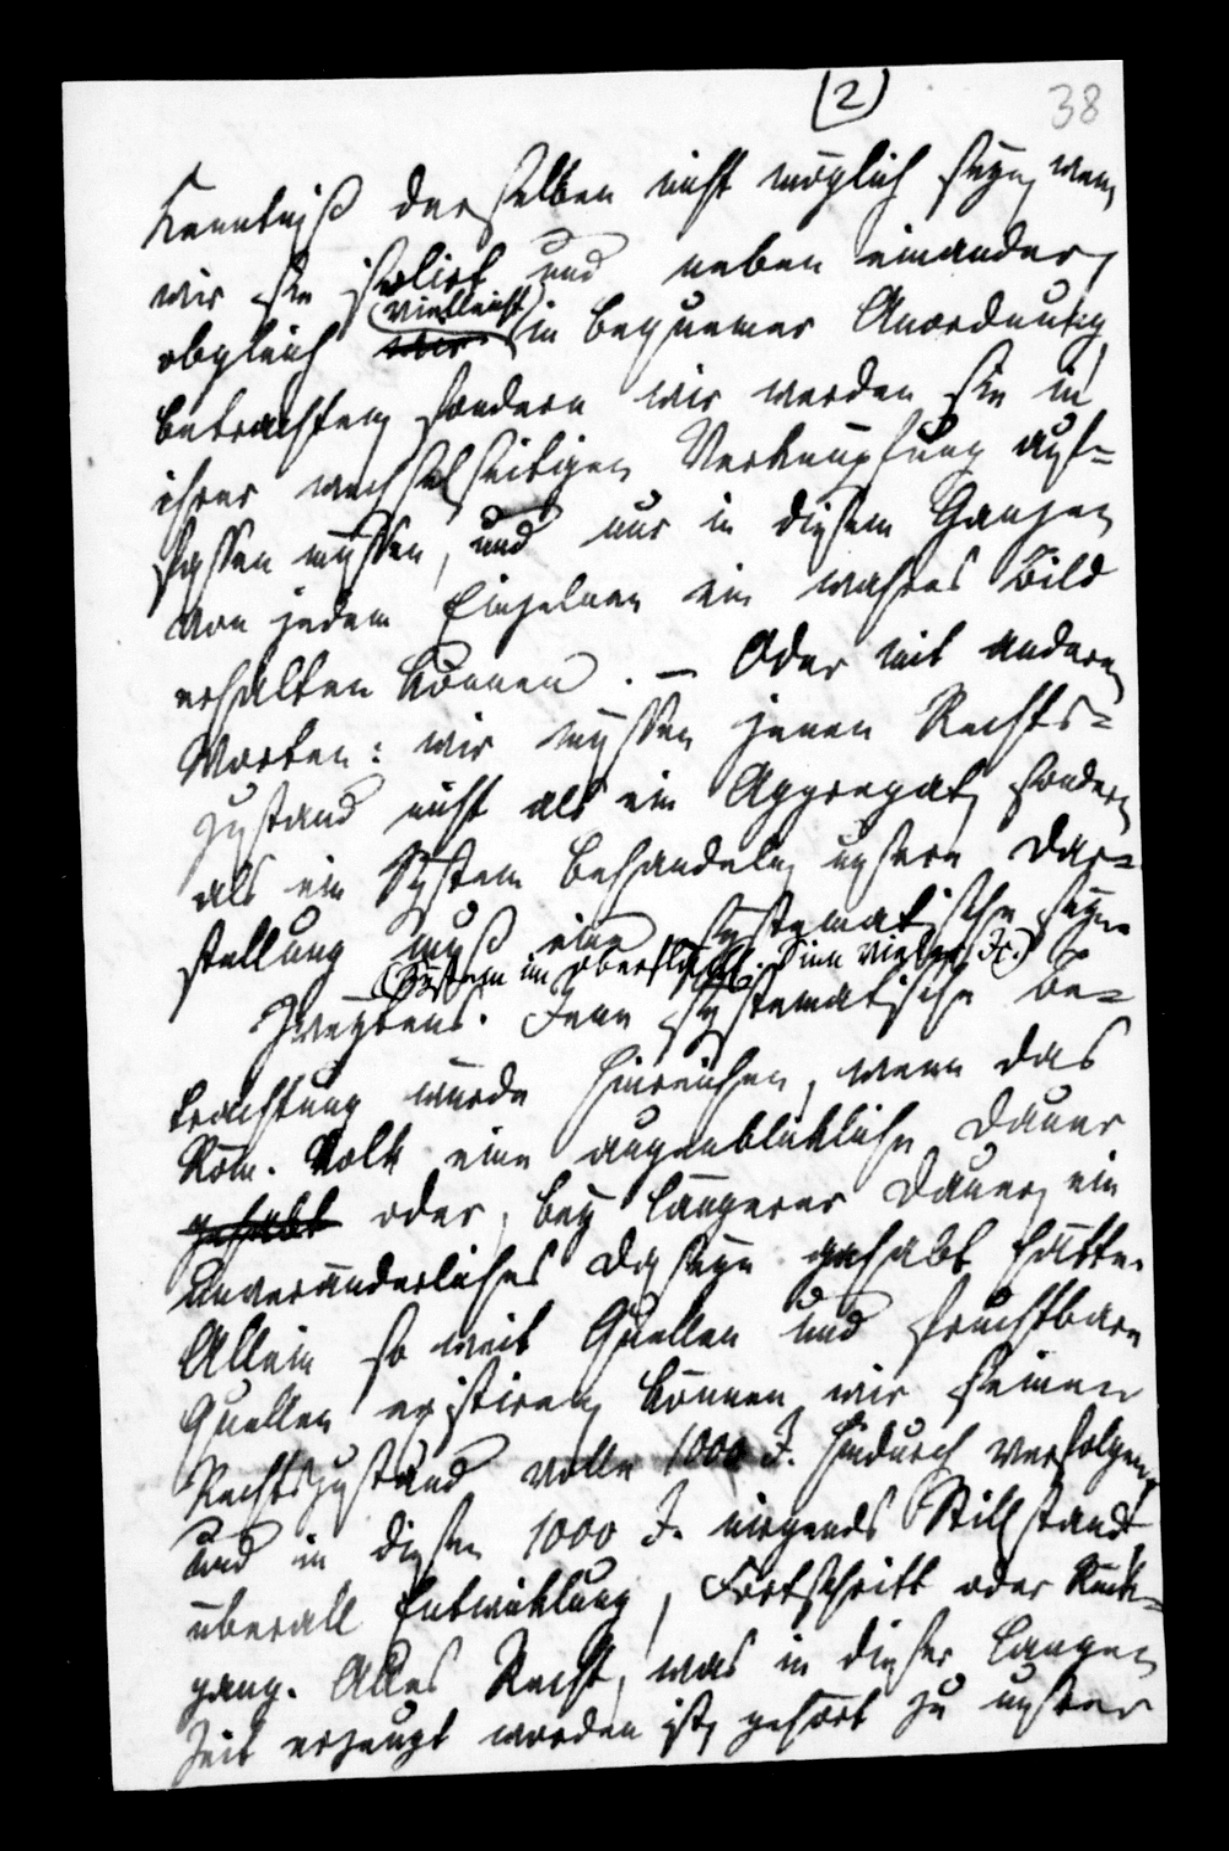 (2)
38
Kenntniß derselben nicht möglich seyn, wenn
wir sie isolirt und neben einander,
(vielleicht)
obgleich wir in bequemer Anordnung,
betrachten, sondern wir werden sie in
ihrer wechselseitigen Verknüpfung auf=
fassen müssen, und nur in diesem Ganzen
von jedem Einzelnen ein wahres Bild
erhalten können. – Oder mit andern
Worten: wir müssen jenen Rechts=
zustand nicht als ein Aggregat, sondern
als ein System behandeln, unsere Dar=
stellung muß eine systematische seyn.
(System im oberflächl. Sinn vieler J.)
Zweytens. Jene systematische Be=
trachtung würde hinreichen, wenn das
Röm. Volk eine augenblickliche Dauer
gehabt oder, bey längerer Dauer, ein
unveränderliches Daseyn gehabt hätte.
Allein so weit Quellen und fruchtbare
Quellen existiren, können wir seinen
Rechtszustand volle 1000 J. hindurch verfolgen,
und in diesen 1000 J. nirgends Stillstand,
überall Entwicklung, Fortschritt oder Rück=
gang. Alles Recht, was in dieser langen
Zeit erzeugt worden ist, gehört zu unsrer